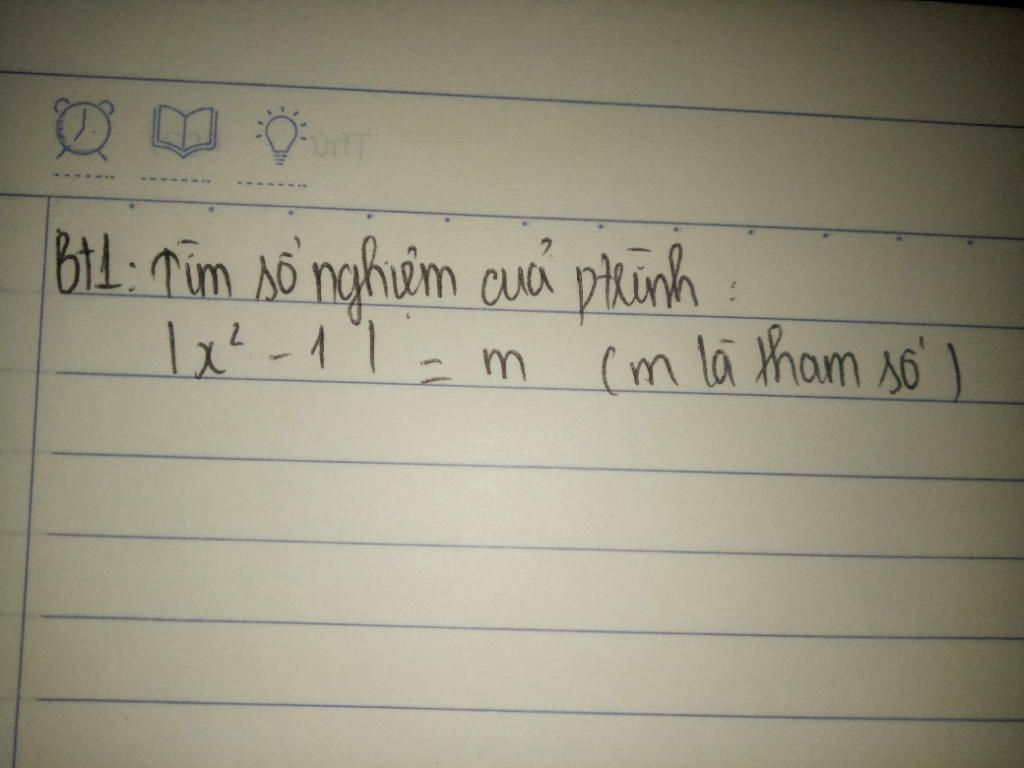 Bt1: Tìm số nghiệm của ptrình :
|x² - 1| = m (m là tham số)